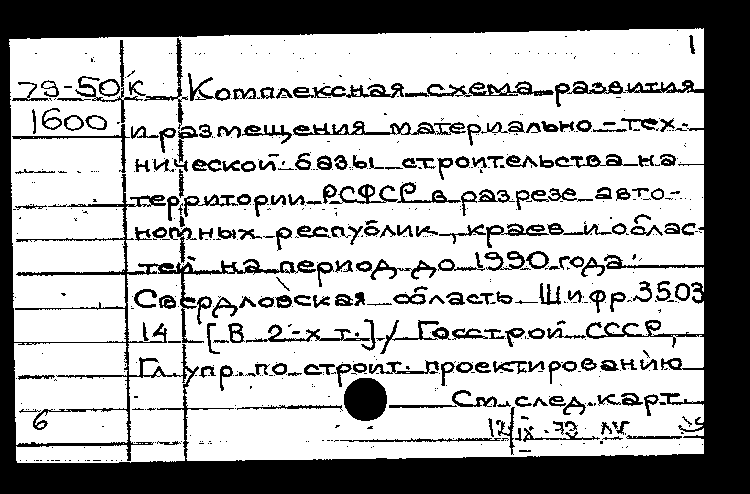 1
79-50 К Комплексная схема развития
1600 и размещения материально-тех-
нической базы строительства на
территории РСФСР в разрезе авто-
номных республик, краев и облас-
тей на период до 1990 года:
Свердловская область. Шифр 3503
14 [В 2-х т.] / Госстрой СССР,
Гл. упр. по строит. проектированию
См. след. карт.
6
12/IX-79